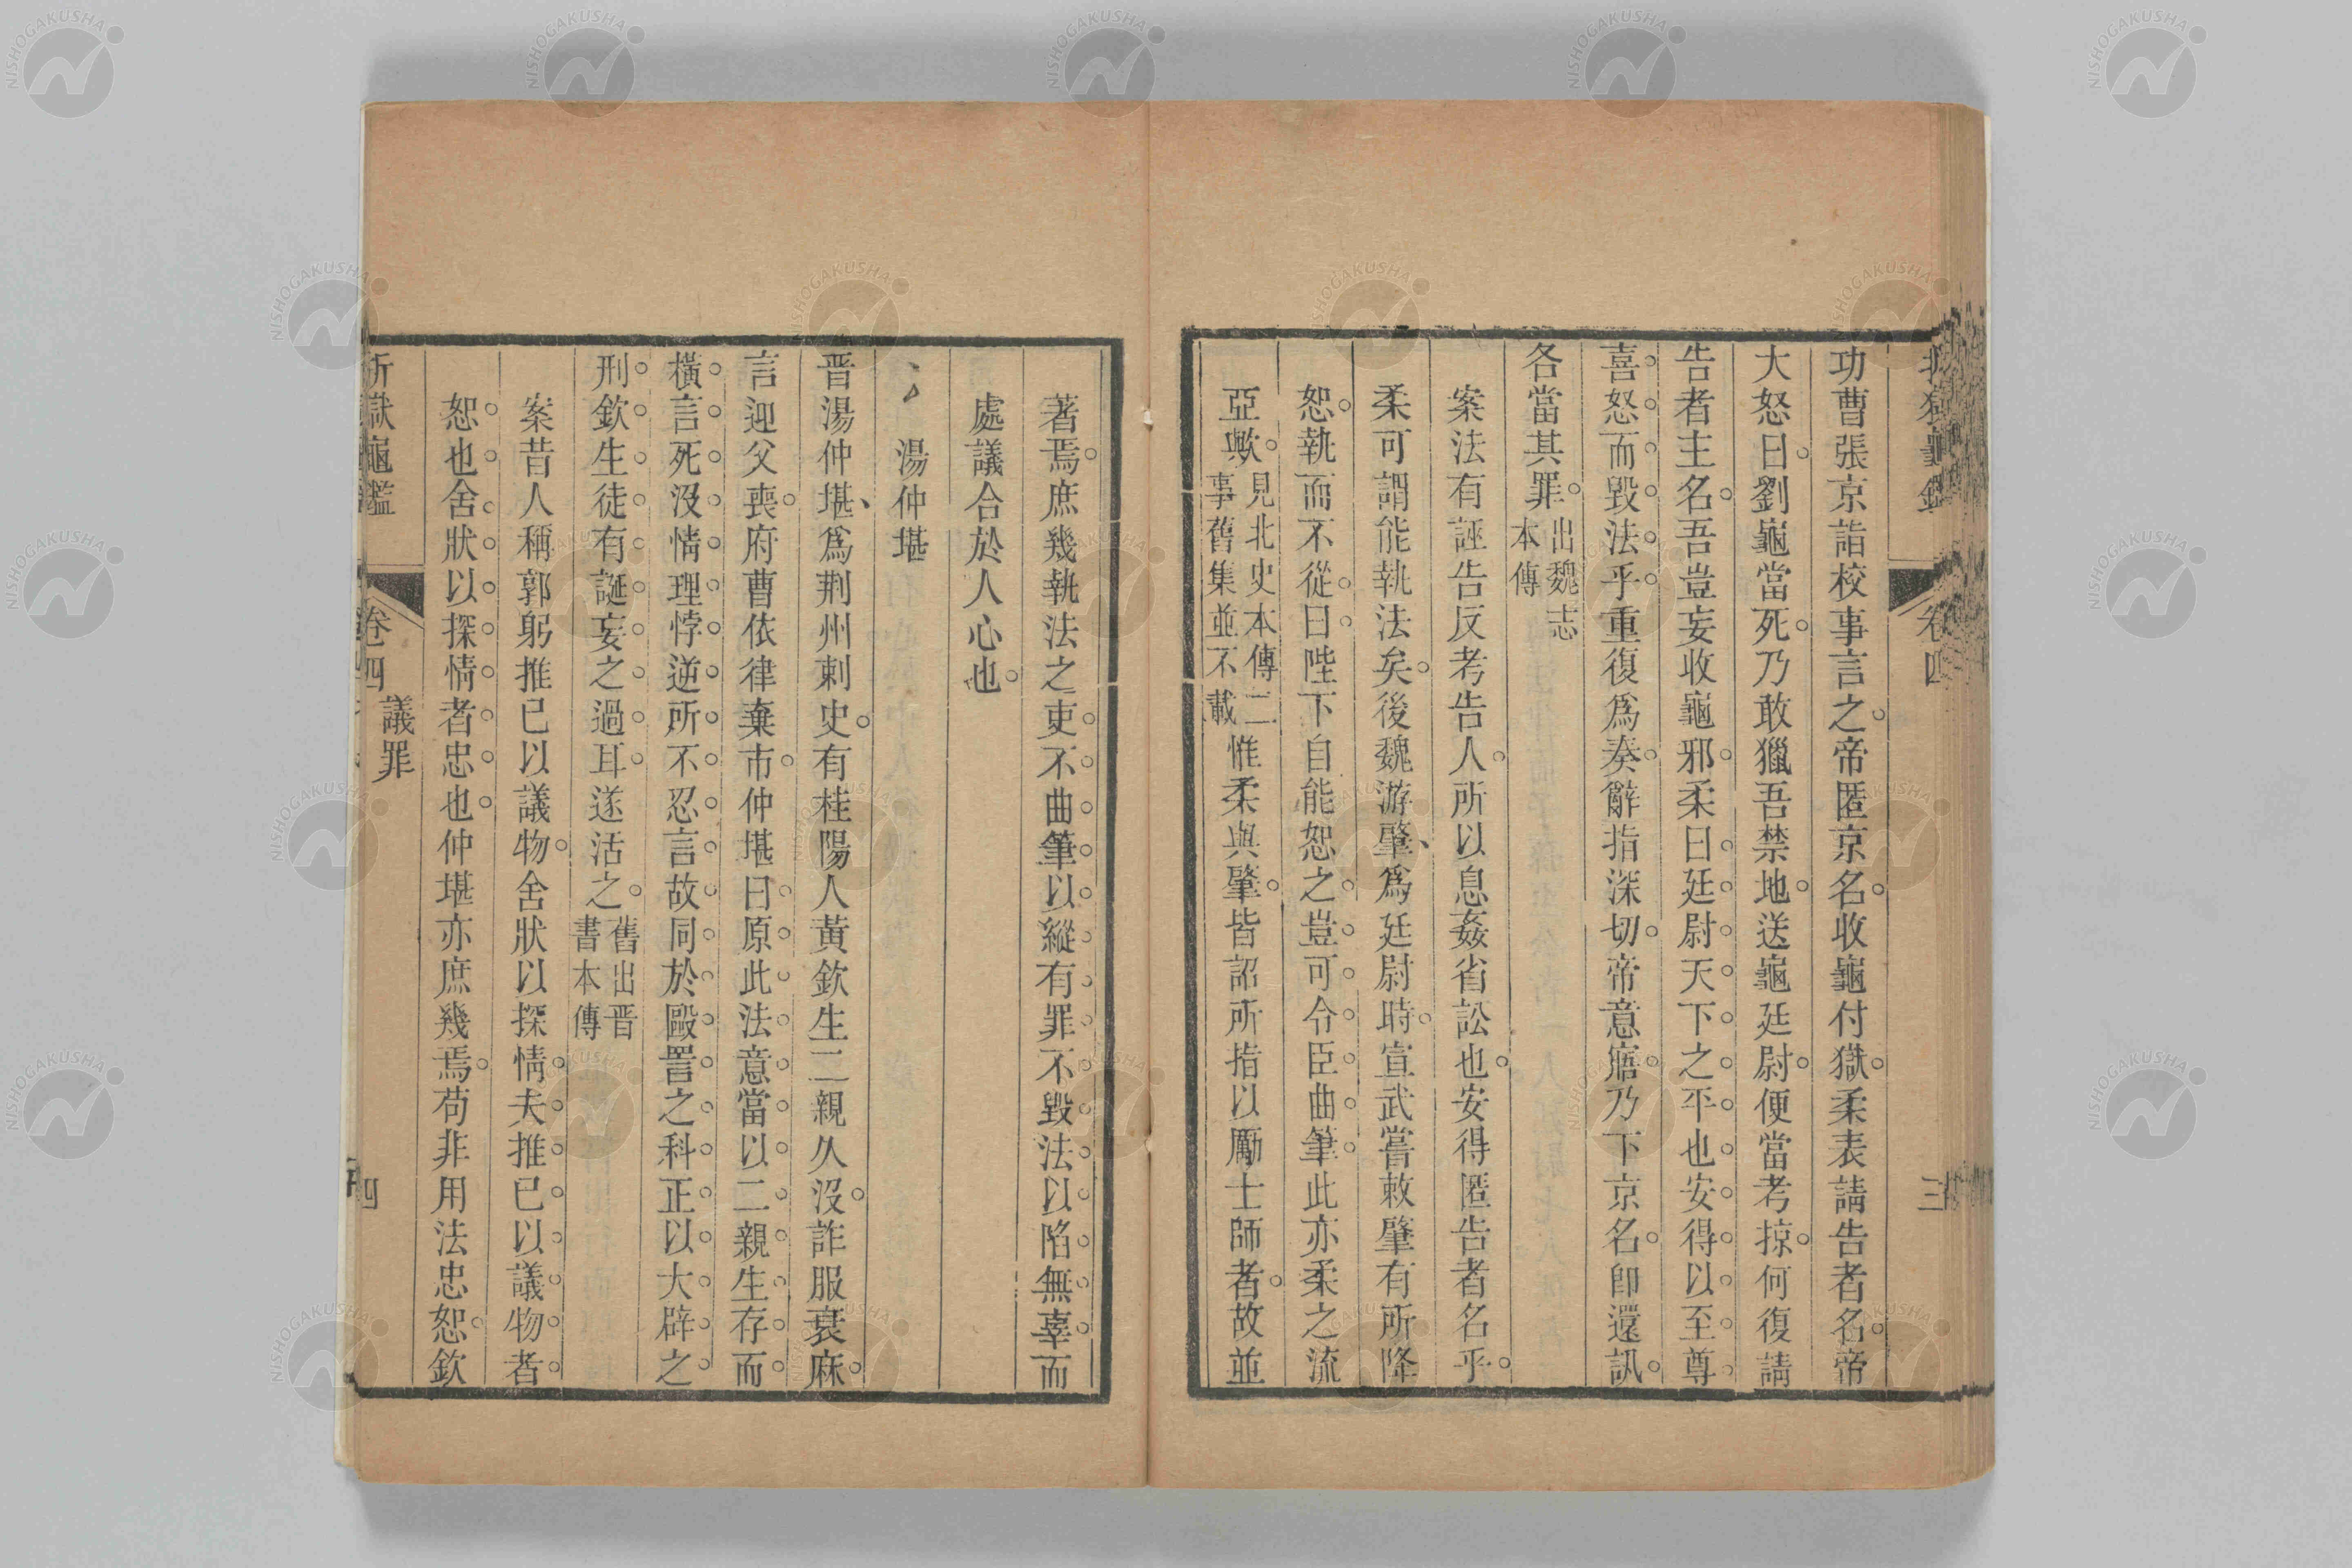 功曹張京詣校事言之。帝匿京名。收龜付獄。柔表請告者名。帝
大怒曰。劉龜當死。乃敢獵吾禁地。送龜廷尉。便當考掠。何復請
告者主名。吾豈妄收龜邪。柔曰。廷尉。天下之平也。安得以至尊
喜怒而毀法乎。重復爲奏。辭指深切。帝意寤。乃下京名。卽還訊。
各當其罪。出魏志本傳
案法有誣告反考告人。所以息姦省訟也。安得匿告者名乎。
柔可謂能執法矣。後魏游肇、爲廷尉時。宣武嘗敕肇有所降
恕。執而不從。曰。陛下自能恕之。豈可令臣曲筆。此亦柔之流
亞歟。見北史本傳二事舊集並不載惟柔與肇。皆詔所指以勵士師者。故並
著焉。庶幾執法之吏。不曲筆以縱有罪。不毀法以陷無辜。而
處議合於人心也。
湯仲堪
晋湯仲堪、爲荆州刺史。有桂陽人黃欽生二親久沒。詐服衰麻。
言迎父喪。府曹依律棄市。仲堪曰。原此法意。當以二親生存。而
橫言死沒。情理悖逆。所不忍言。故同於毆詈之科。正以大辟之
刑。欽生徒有誕妄之過耳。遂活之。舊出晋書本傳
案昔人稱郭躬推已以議物。舍狀以探情。夫推已以議物者。
恕也。舍狀以探情者。忠也。仲堪亦庶幾焉。苟非用法忠恕。欽
折獄龜鑑 卷四 議罪 四
卷四 三
NISHOGAKUSHA